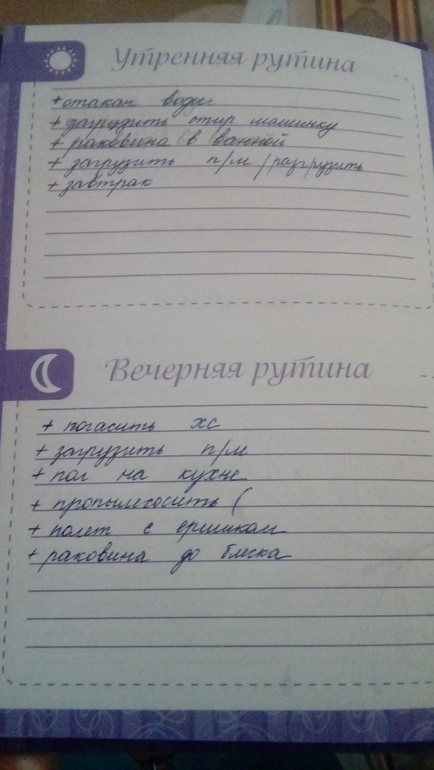 Утренняя рутина
+ стакан воды
+ загрузить стир машинку
+ раковина в ванной
+ загрузить п/м / разгрузить
+ завтрак
Вечерняя рутина
+ погасить хс
+ загрузить п/м
+ пол на кухне
+ пропылесосить (
+ полет с ершиком
+ раковина до блеска